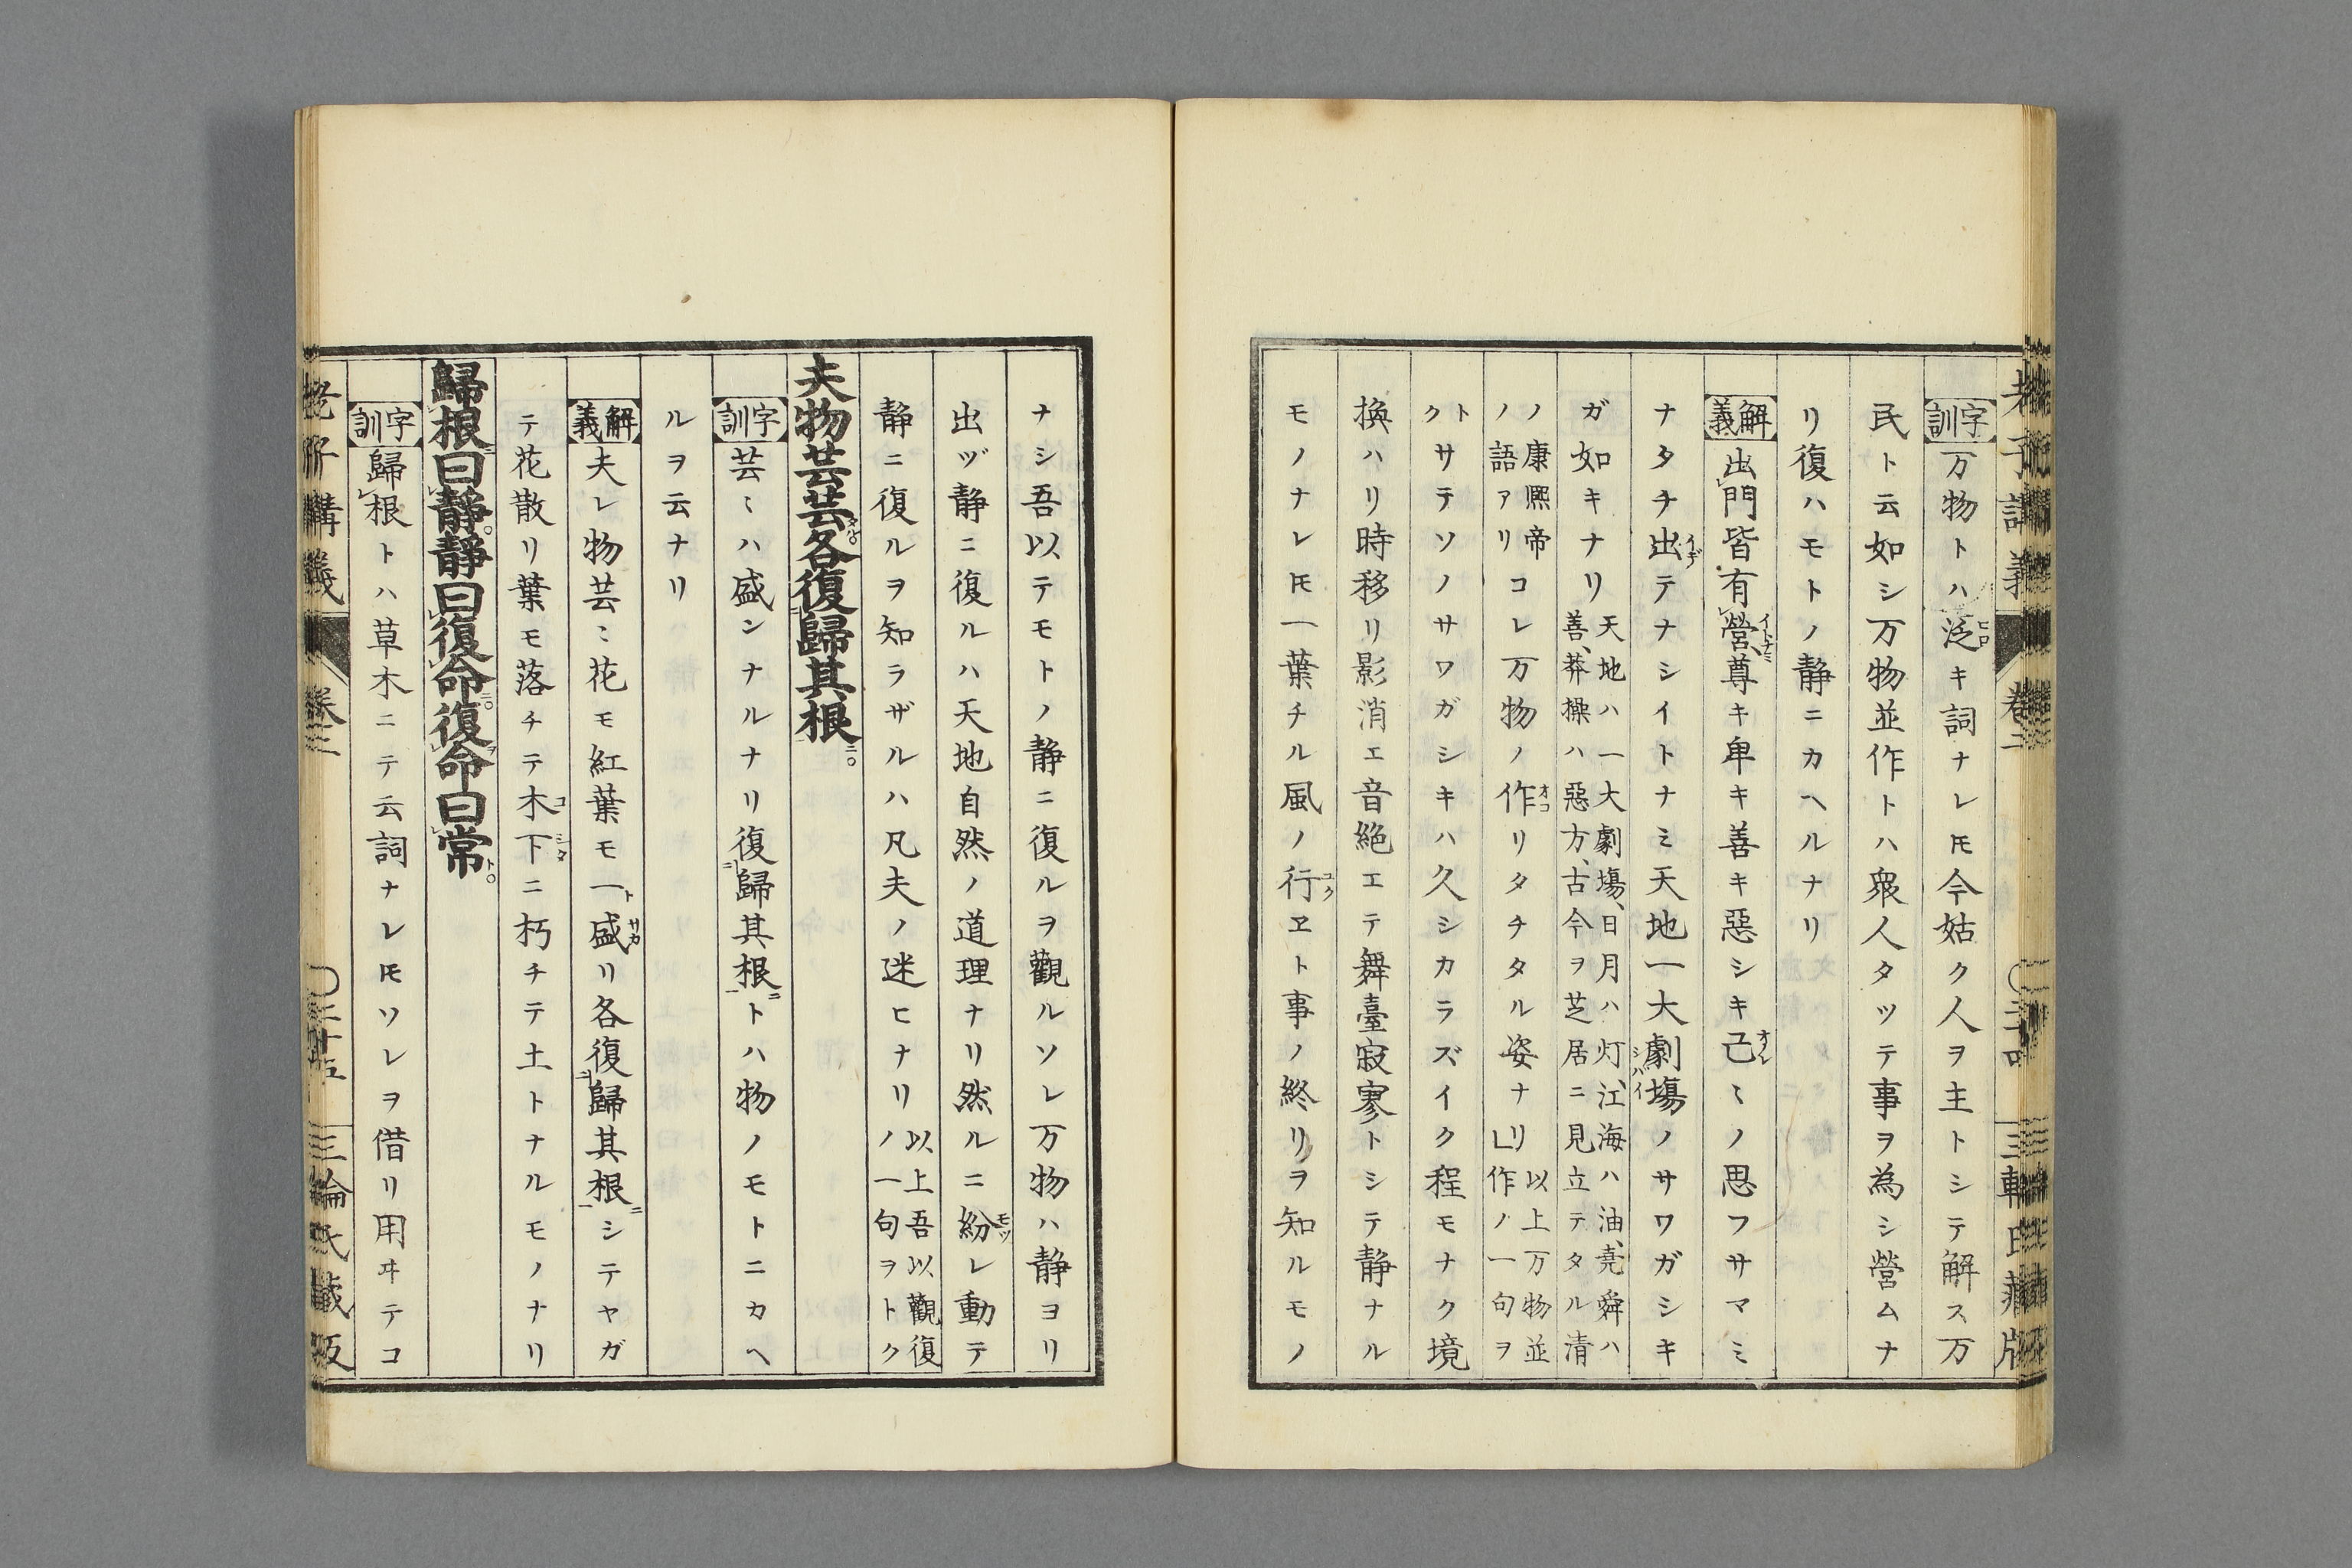 老子講義
卷二
三輪氏藏版
字訓 万物トハ泛キ詞ナレ𪜈今姑ク人ヲ主トシテ解ス万
民ト云如シ万物並作トハ衆人タツテ事ヲ為シ營ムナ
リ復ハモトノ静ニカヘルナリ
解義 出門皆有營、尊キ卑キ善キ惡シキ己〻ノ思フサマミ
ナタチ出テナシイトナミ天地一大劇塲ノサワガシキ
ガ如キナリ天地ハ一大劇塲、日月ハ灯、江海ハ油、堯舜ハ
善、莽操ハ惡方、古今ヲ芝居ニ見立テタル清
ノ康熙帝
ノ語アリコレ万物ノ作リタチタル姿ナリ」以上万物並
作ノ一句ヲ
トクサテソノサワガシキハ久シカラズイク程モナク境
換ハリ時移リ影消エ音絶エテ舞臺寂寥トシテ静ナル
モノナレ𪜈一葉チル風ノ行ヱト事ノ終リヲ知ルモノ
ナシ吾以テモトノ静ニ復ルヲ觀ルソレ万物ハ静ヨリ
出ヅ静ニ復ルハ天地自然ノ道理ナリ然ルニ紛レ動テ
静ニ復ルヲ知ラザルハ凡夫ノ迷ヒナリ以上吾以觀復
ノ一句ヲトク
夫物芸芸各復歸其根
字訓 芸〻ハ盛ンナルナリ復歸其根トハ物ノモトニカヘ
ルヲ云ナリ
解義 夫レ物芸〻花モ紅葉モ一盛リ各復歸其根シテヤガ
テ花散リ葉モ落チテ木下ニ朽チテ土トナルモノナリ
歸根曰靜靜曰復命復命曰常
字訓 歸根トハ草木ニテ云詞ナレ𪜈ソレヲ借リ用ヰテコ
老子講義
卷二
〇二十五
三輪氏藏版